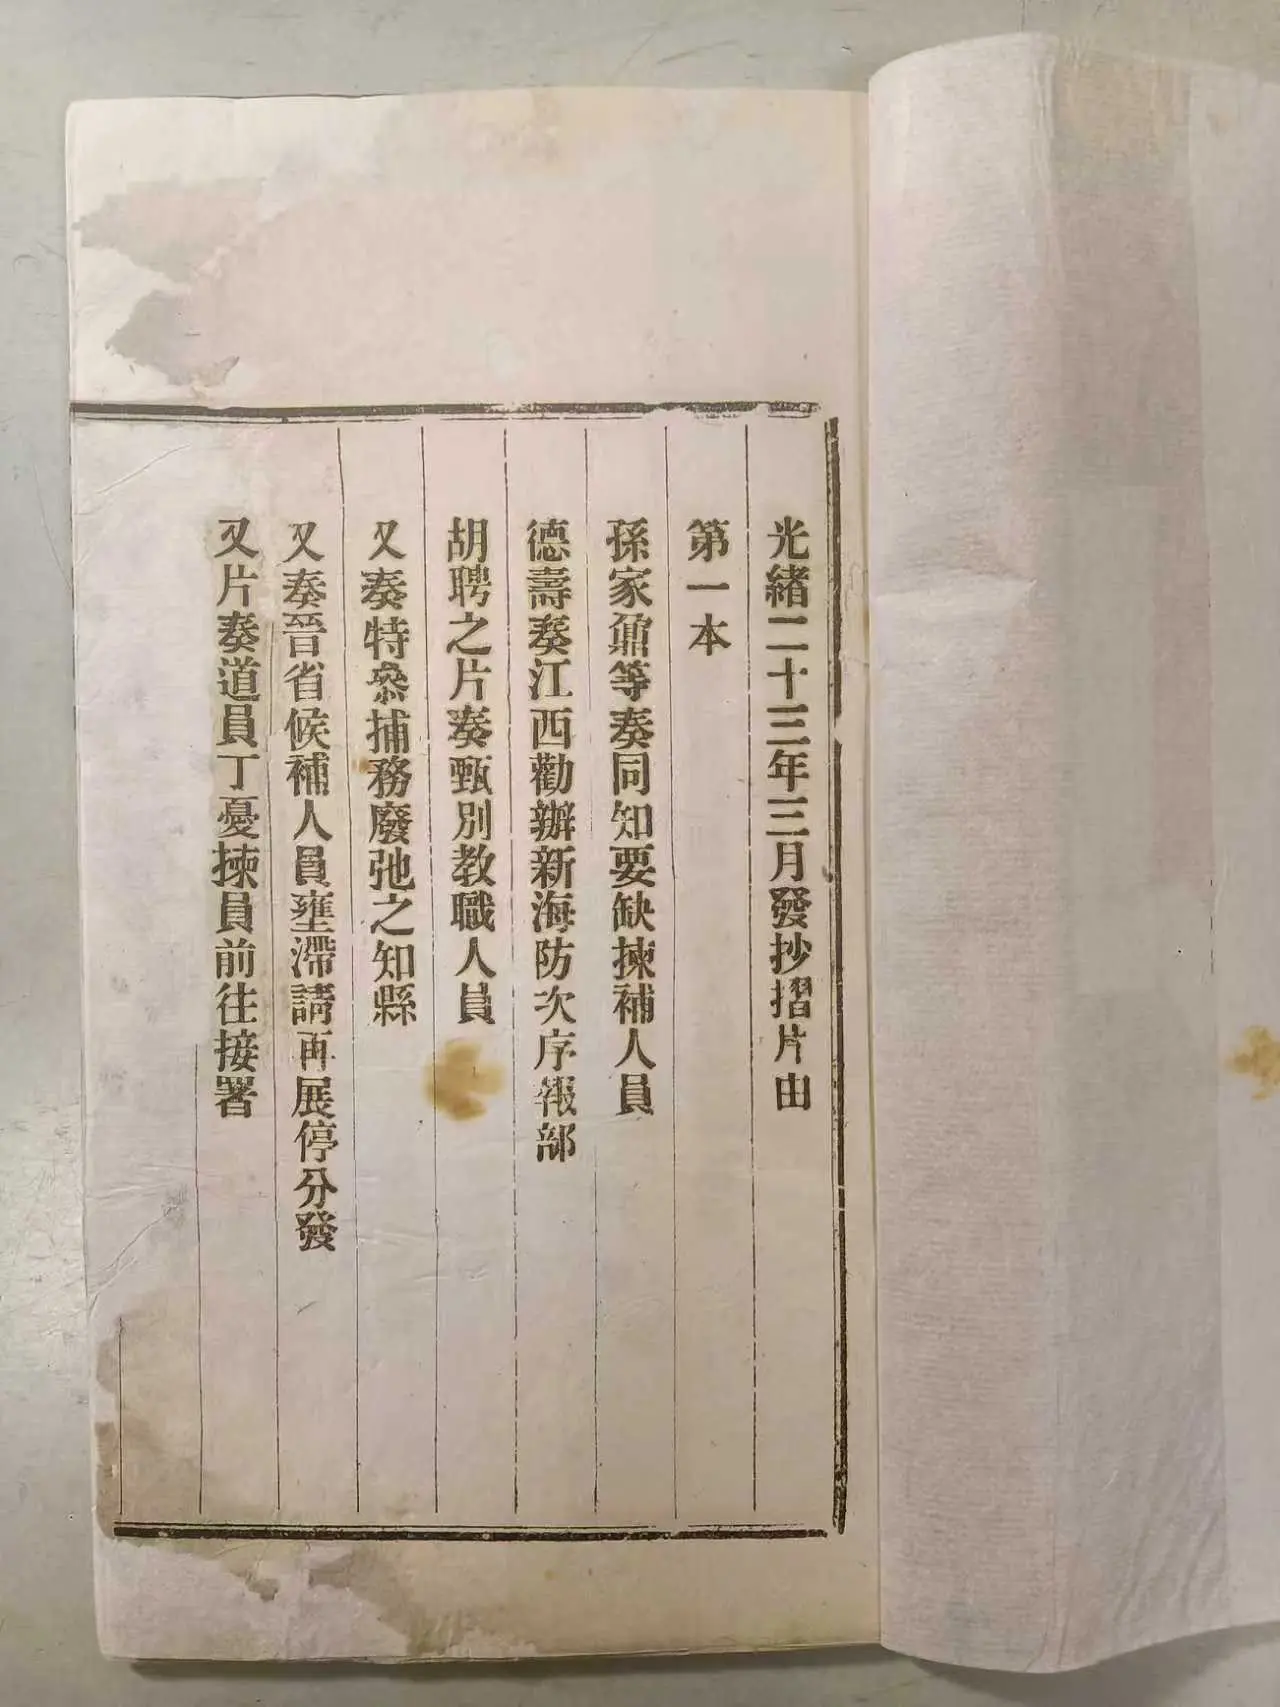 光緒二十三年三月發抄摺片由
第一本
孫家鼐等奏同知要缺揀補人員
德壽奏江西勸辦新海防次序報部
胡聘之片奏甄別教職人員
又奏特叅捕務廢弛之知縣
又奏晉省候補人員壅滯請再展停分發
又片奏道員丁憂揀員前往接署